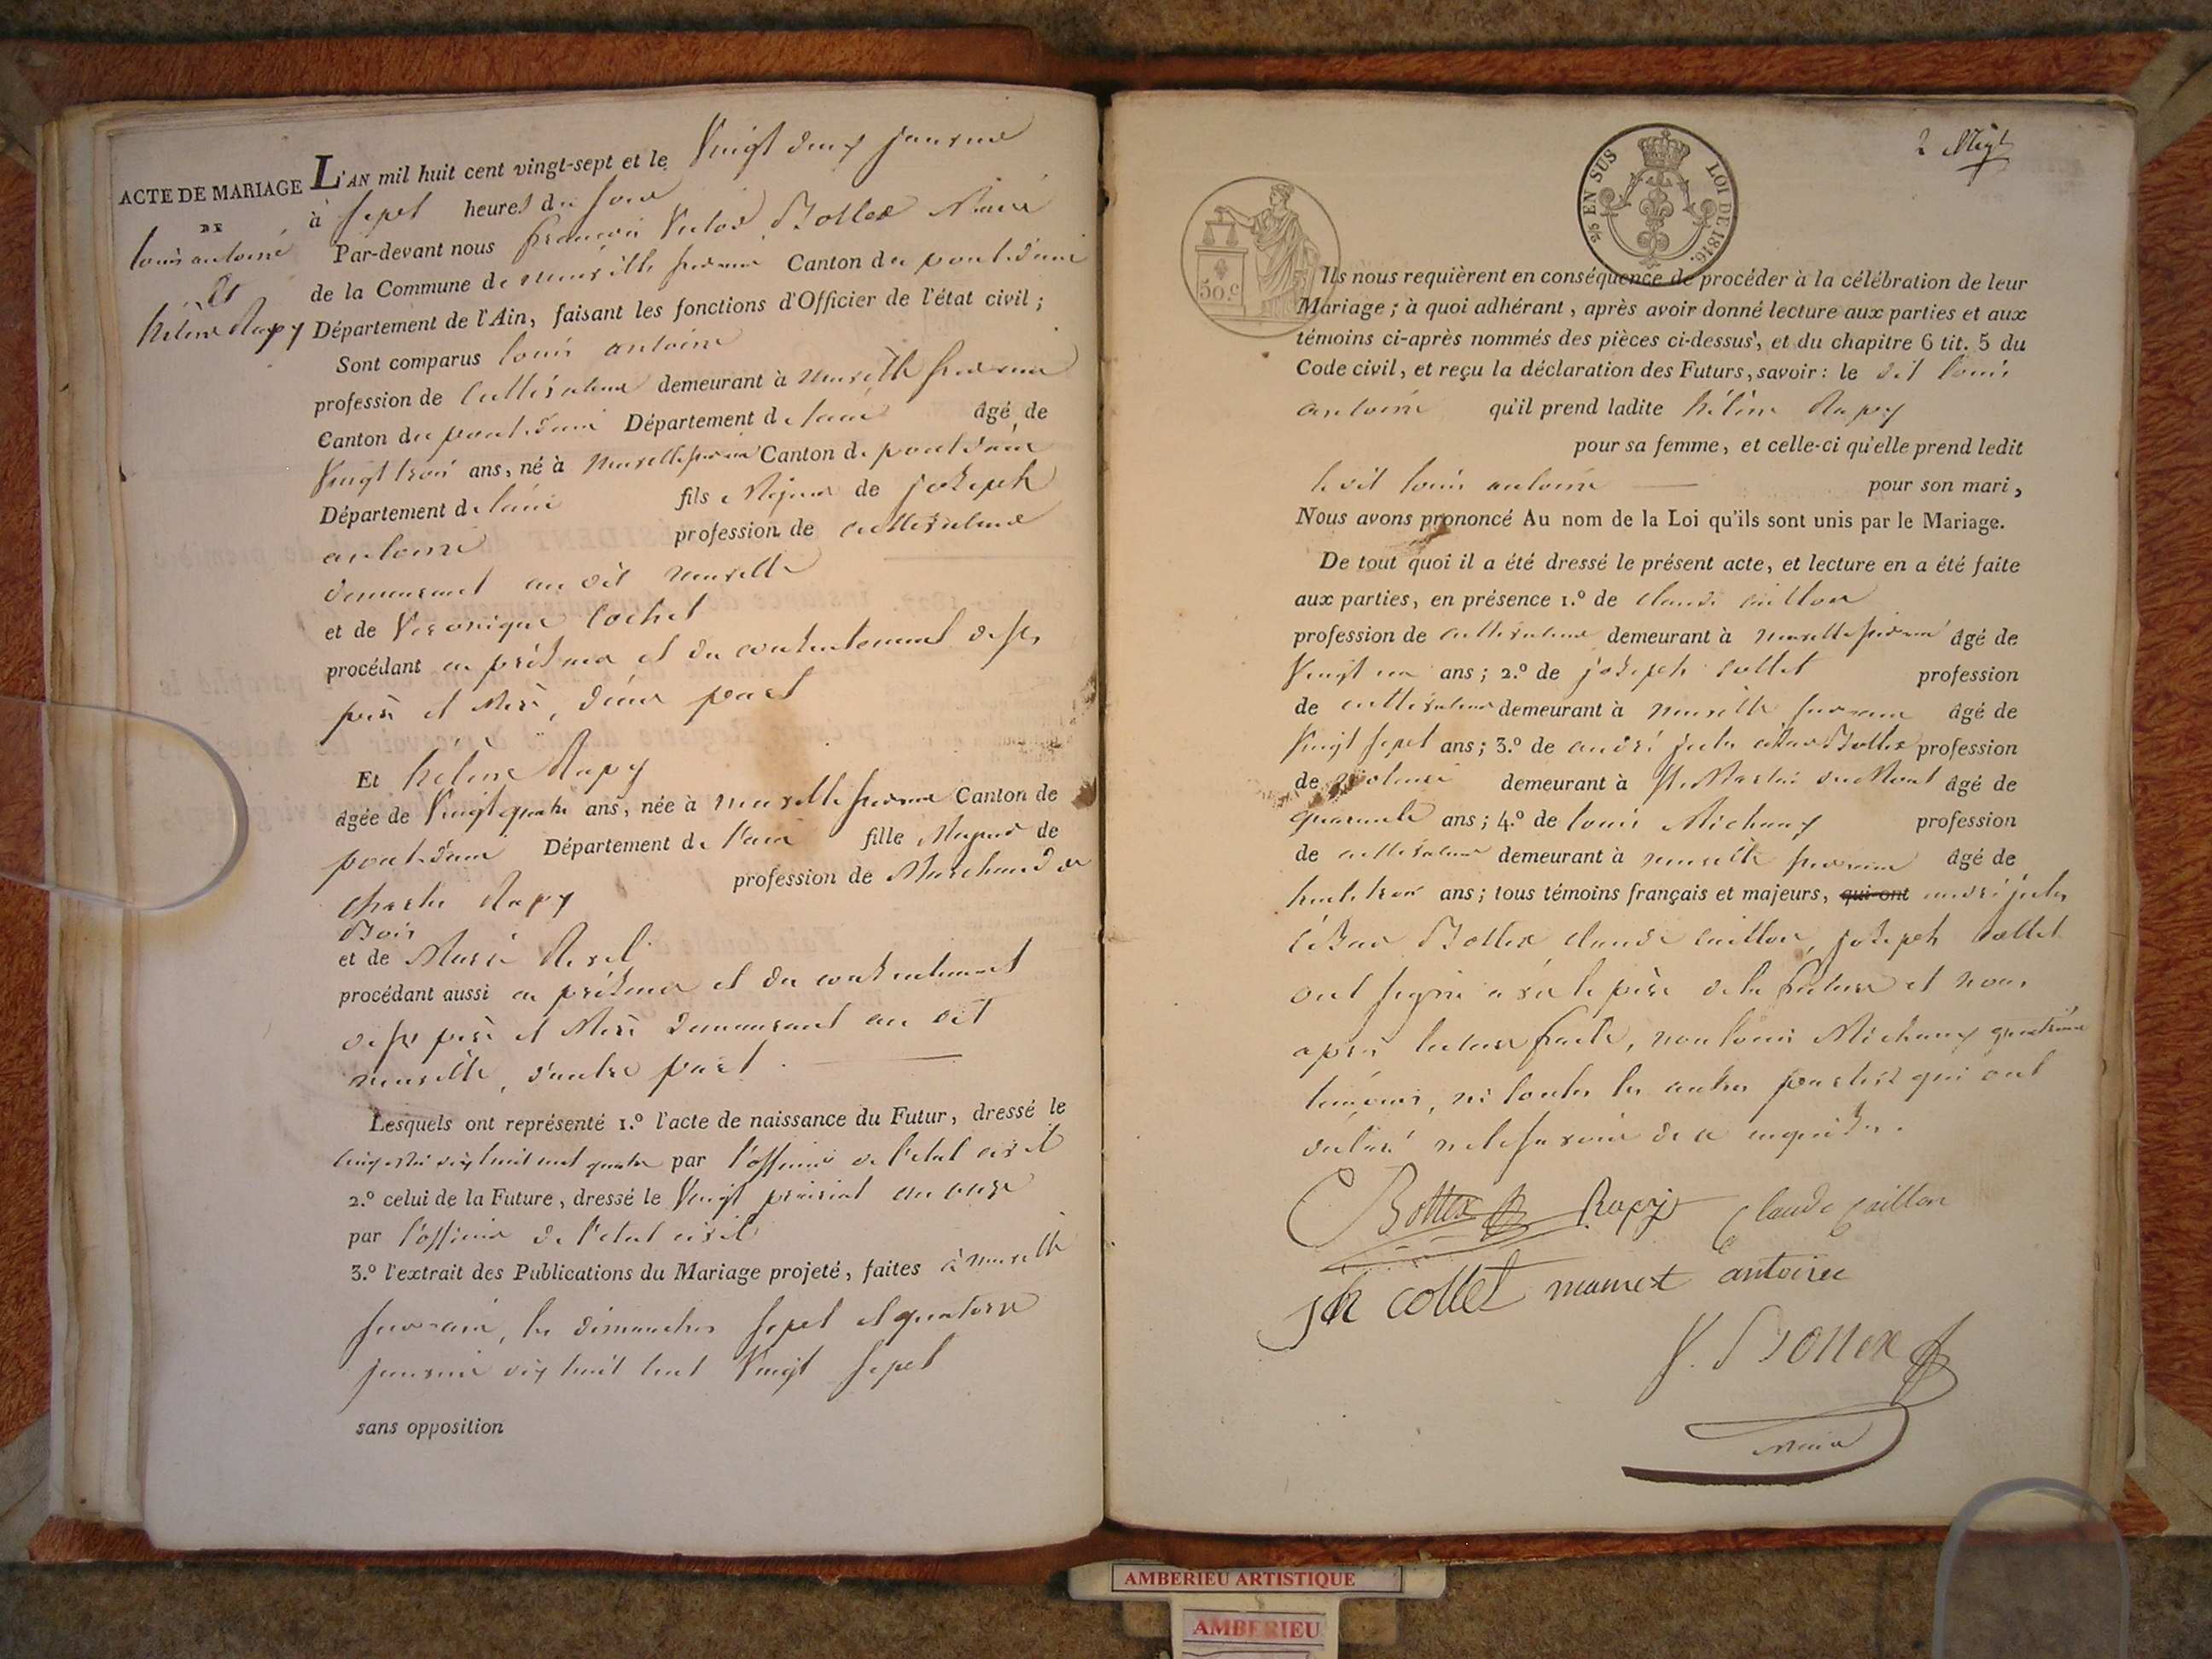 ACTE DE MARIAGE
DE
louis antoine
Et
hélène Rapy
L'AN mil huit cent vingt-sept et le Vingt deux janvier
à sept heures du soir
Par-devant nous françois Victor Bottex Maire
de la Commune de neuville sur ain Canton du pont-d'ain
Département de l'Ain, faisant les fonctions d'Officier de l'état civil ;
Sont comparus louis antoine
profession de Cultivateur demeurant à neuville sur ain
Canton du pont-d'ain Département de l'ain âgé de
Vingt trois ans, né à neuville sur ain Canton de pont d'ain
Département de l'ain fils Majeur de joseph
antoine profession de cultivateur
demeurant au dit neuville
et de Veronique Cochet
procédant en présence et du consentement de ses
père et Mère, d'une part
Et hélène Rapy
âgée de Vingt quatre ans, née à neuville sur ain Canton de
pont-d'ain Département de l'ain fille Majeur de
Charles Rapy profession de Marchand de
Bois
et de Marie
procédant aussi en présence et du consentement
de ses père et Mère demeurant au dit
neuville, d'autre part.
Lesquels ont représenté 1.º l'acte de naissance du Futur, dressé le
dix huit cent quatre par l'officier de l'etat civil
2.º celui de la Future, dressé le Vingt prairial an onze
par l'officier de l'etat civil
3.º l'extrait des Publications du Mariage projeté, faites à neuville
sur ain, les dimanches sept et quatorze
janvier dix huit cent Vingt sept
sans opposition
2 Migt
2/5 EN SUS LOI DE 1816.
50.c
Ils nous requièrent en conséquence de procéder à la célébration de leur
Mariage ; à quoi adhérant, après avoir donné lecture aux parties et aux
témoins ci-après nommés des pièces ci-dessus, et du chapitre 6 tit. 5 du
Code civil, et reçu la déclaration des Futurs, savoir : le dit louis
antoine qu'il prend ladite hélène Rapy
pour sa femme, et celle-ci qu'elle prend ledit
le dit louis antoine pour son mari,
Nous avons prononcé Au nom de la Loi qu'ils sont unis par le Mariage.
De tout quoi il a été dressé le présent acte, et lecture en a été faite
aux parties, en présence 1.º de claude caillon
profession de cultivateur demeurant à neuville sur ain âgé de
Vingt un ans ; 2.º de joseph collet profession
de cultivateur demeurant à neuville sur ain âgé de
Vingt sept ans ; 3.º de andré jules Bottex profession
de notaire demeurant à St Martin du Mont âgé de
quarante ans ; 4.º de louis Michaux profession
de cultivateur demeurant à neuville sur ain âgé de
trente trois ans ; tous témoins français et majeurs, qui ont andré jules
Bottex claude caillon, joseph collet
ont signé avec le père de la future et nous
après lecture faite, non louis Michaux quatrième
temoin, ni toutes les autres parties qui ont
déclaré ne le savoir de ce enquis.
Bottex Rapy Claude Caillon
jh collet mamet antoine
V. Bottex
Maire
AMBERIEU ARTISTIQUE
AMBERIEU